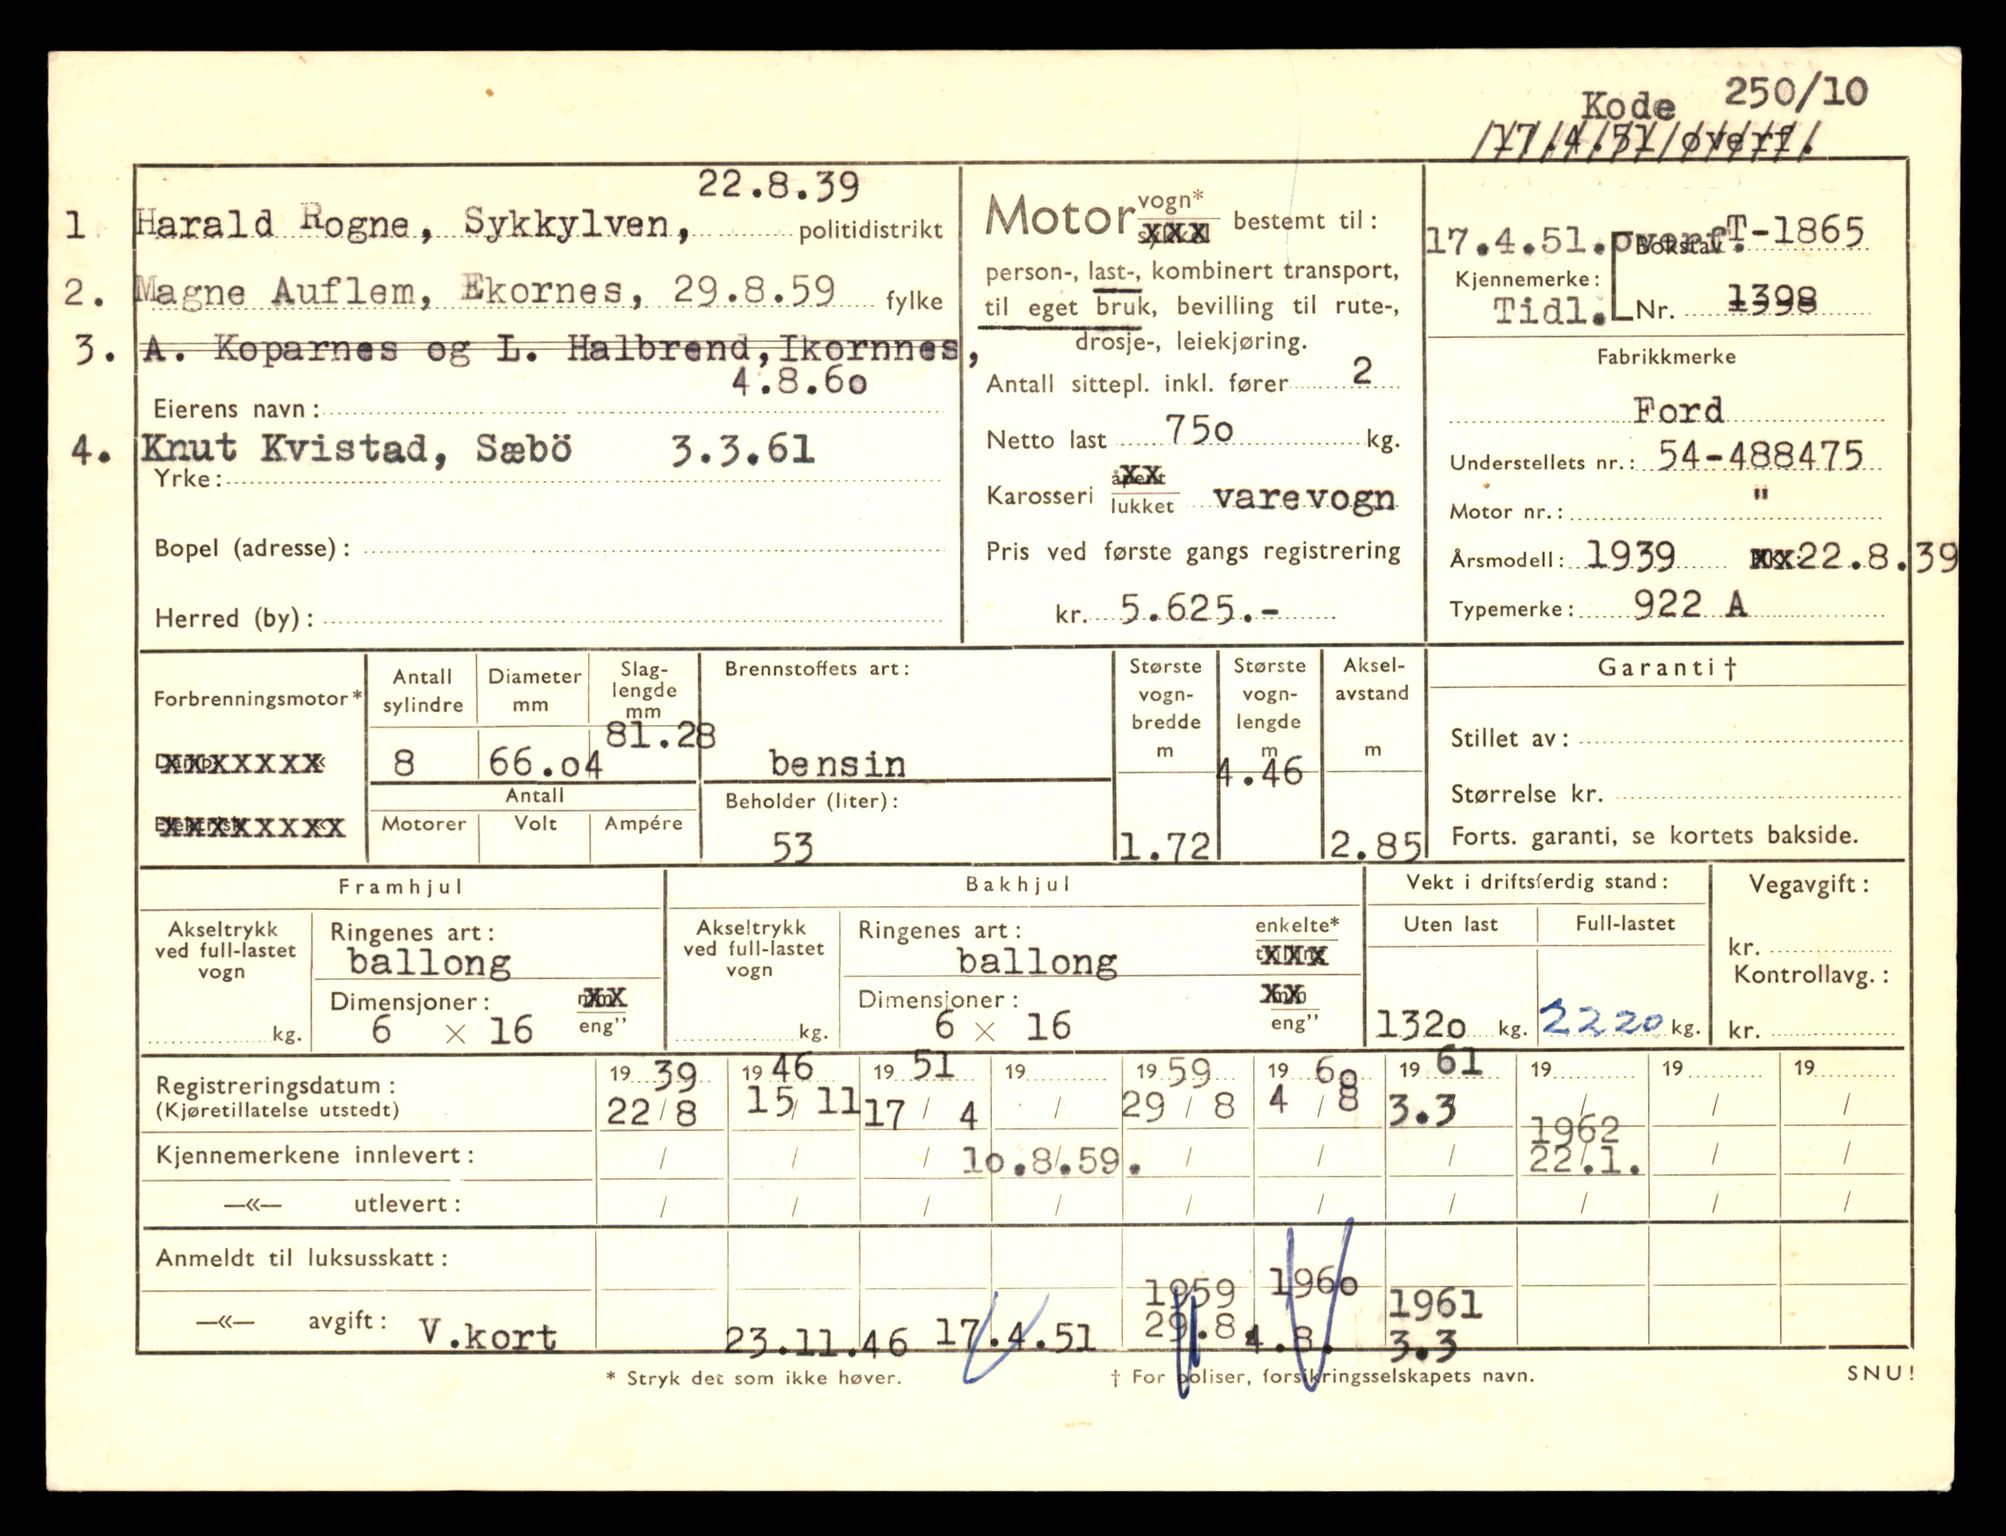 Kode 250/10
17.4.51 øverf.
22.8.39
1 Harald Rogne, Sykkylven, politidistrikt
2. Magne Auflem, Ekornes, 29.8.59 fylke
3. A. Koparnes og L. Halbrend, Ikornnes,
4.8.6o
Eierens navn:
4. Knut Kvistad, Sæbö 3.3.61
Yrke:
Bopel (adresse):
Herred (by):
Motor vogn* bestemt til:
person-, last-, kombinert transport,
til eget bruk, bevilling til rute-,
drosje-, leiekjøring.
Antall sittepl. inkl. fører 2
Netto last 75o kg.
Karosseri åpent
lukket varevogn
Pris ved første gangs registrering
kr. 5.625.-
17.4.51.overf. Bokstav T-1865
Kjennemerke:
Tidl. Nr. 1398
Fabrikkmerke
Ford
Understellets nr.: 54-488475
Motor nr.: "
Årsmodell: 1939 22.8.39
Typemerke: 922 A
Forbrenningsmotor*
Damp «
Elektrisk «
Antall sylindre
8
Diameter mm
66.o4
Slag-
lengde
mm
81.28
Antall
Motorer Volt Ampére
Brennstoffets art:
bensin
Beholder (liter):
53
Største
vogn-
bredde
m
1.72
Største
vogn-
lengde
m
4.46
Aksel-
avstand
m
2.85
Garanti †
Stillet av:
Størrelse kr.
Forts. garanti, se kortets bakside.
Framhjul
Akseltrykk
ved full-lastet
vogn
kg.
Ringenes art:
ballong
Dimensjoner: mm
6 × 16 eng"
Bakhjul
Akseltrykk
ved full-lastet
vogn
kg.
Ringenes art: enkelte*
ballong
Dimensjoner: mm
6 × 16 eng"
Vekt i driftsferdig stand:
Uten last Full-lastet
132o kg. 2220 kg.
Vegavgift:
kr.
Kontrollavg.:
kr.
Registreringsdatum: 19 39 19 46 19 51 19 19 59 19 6o 19 61 19 19 19
(Kjøretillatelse utstedt) 22/8 15/11 17/4 / 29/8 4/8 3.3 / / /
1962
Kjennemerkene innlevert: / / / 1o.8.59. / / / 22.1. / /
—«— utlevert: / / / / / / / / / /
Anmeldt til luksusskatt:
1959 196o 1961
—«— avgift: V.kort 23.11.46 17.4.51 29.8. 4.8. 3.3
* Stryk det som ikke høver. † For poliser, forsikringsselskapets navn. SNU!